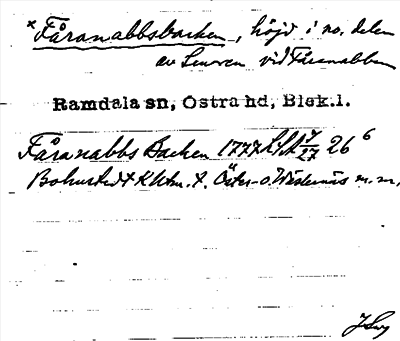 *Fåranabbsbacken, höjd i no. delen
av Senoren vid Fåranabben
Ramdala sn, Östra hd, Blek. l.
Fåranabbs Backen 1777 7/27 26⁶
Bohustedt Öster- o. m. m.